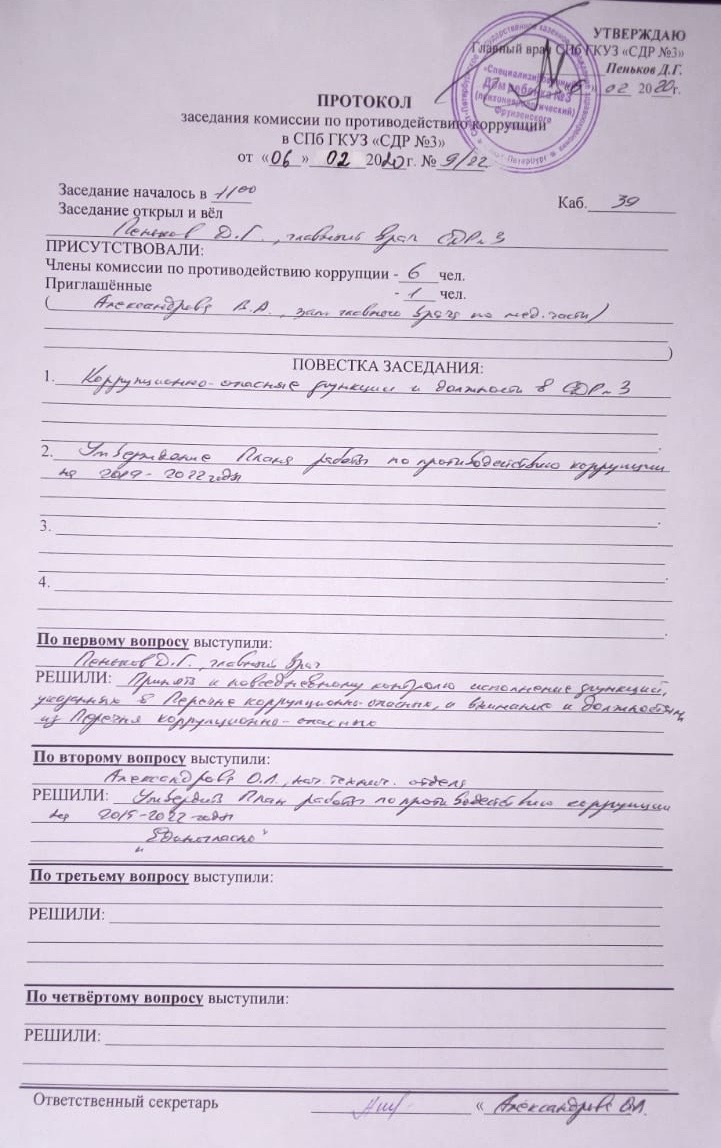 УТВЕРЖДАЮ
Главный врач СПб ГКУЗ «СДР №3»
Пеньков Д.Г.
«06» 02 2020г.
«Специализированный
Дом ребенка №3
(психоневрологический)
Фрунзенского
ПРОТОКОЛ
заседания комиссии по противодействию коррупции
в СПб ГКУЗ «СДР №3»
от «06» 02 2020г. № 9/02
Заседание началось в 11⁰⁰ Каб. 39
Заседание открыл и вёл
Пеньков Д.Г., главный врач СДР №3
ПРИСУТСТВОВАЛИ:
Члены комиссии по противодействию коррупции - 6 чел.
Приглашённые - 1 чел.
(Александрова В.А., зам. главного врача по мед. части)
)
ПОВЕСТКА ЗАСЕДАНИЯ:
1. Коррупционно-опасные функции и должности в СДР №3
2. Утверждение Плана работы по противодействию коррупции
на 2019-2022 годы
3.
4.
По первому вопросу выступили:
Пеньков Д.Г., главный врач
РЕШИЛИ: Принять к повседневному контролю исполнение функций,
указанных в Перечне коррупционно-опасных, и внимание к должностям
из Перечня коррупционно-опасных
По второму вопросу выступили:
Александрова О.Л., нач. технич. отдела
РЕШИЛИ: Утвердить План работы по противодействию коррупции
на 2019-2022 годы
"Единогласно"
По третьему вопросу выступили:
РЕШИЛИ:
По четвёртому вопросу выступили:
РЕШИЛИ:
Ответственный секретарь « Александрова О.Л.